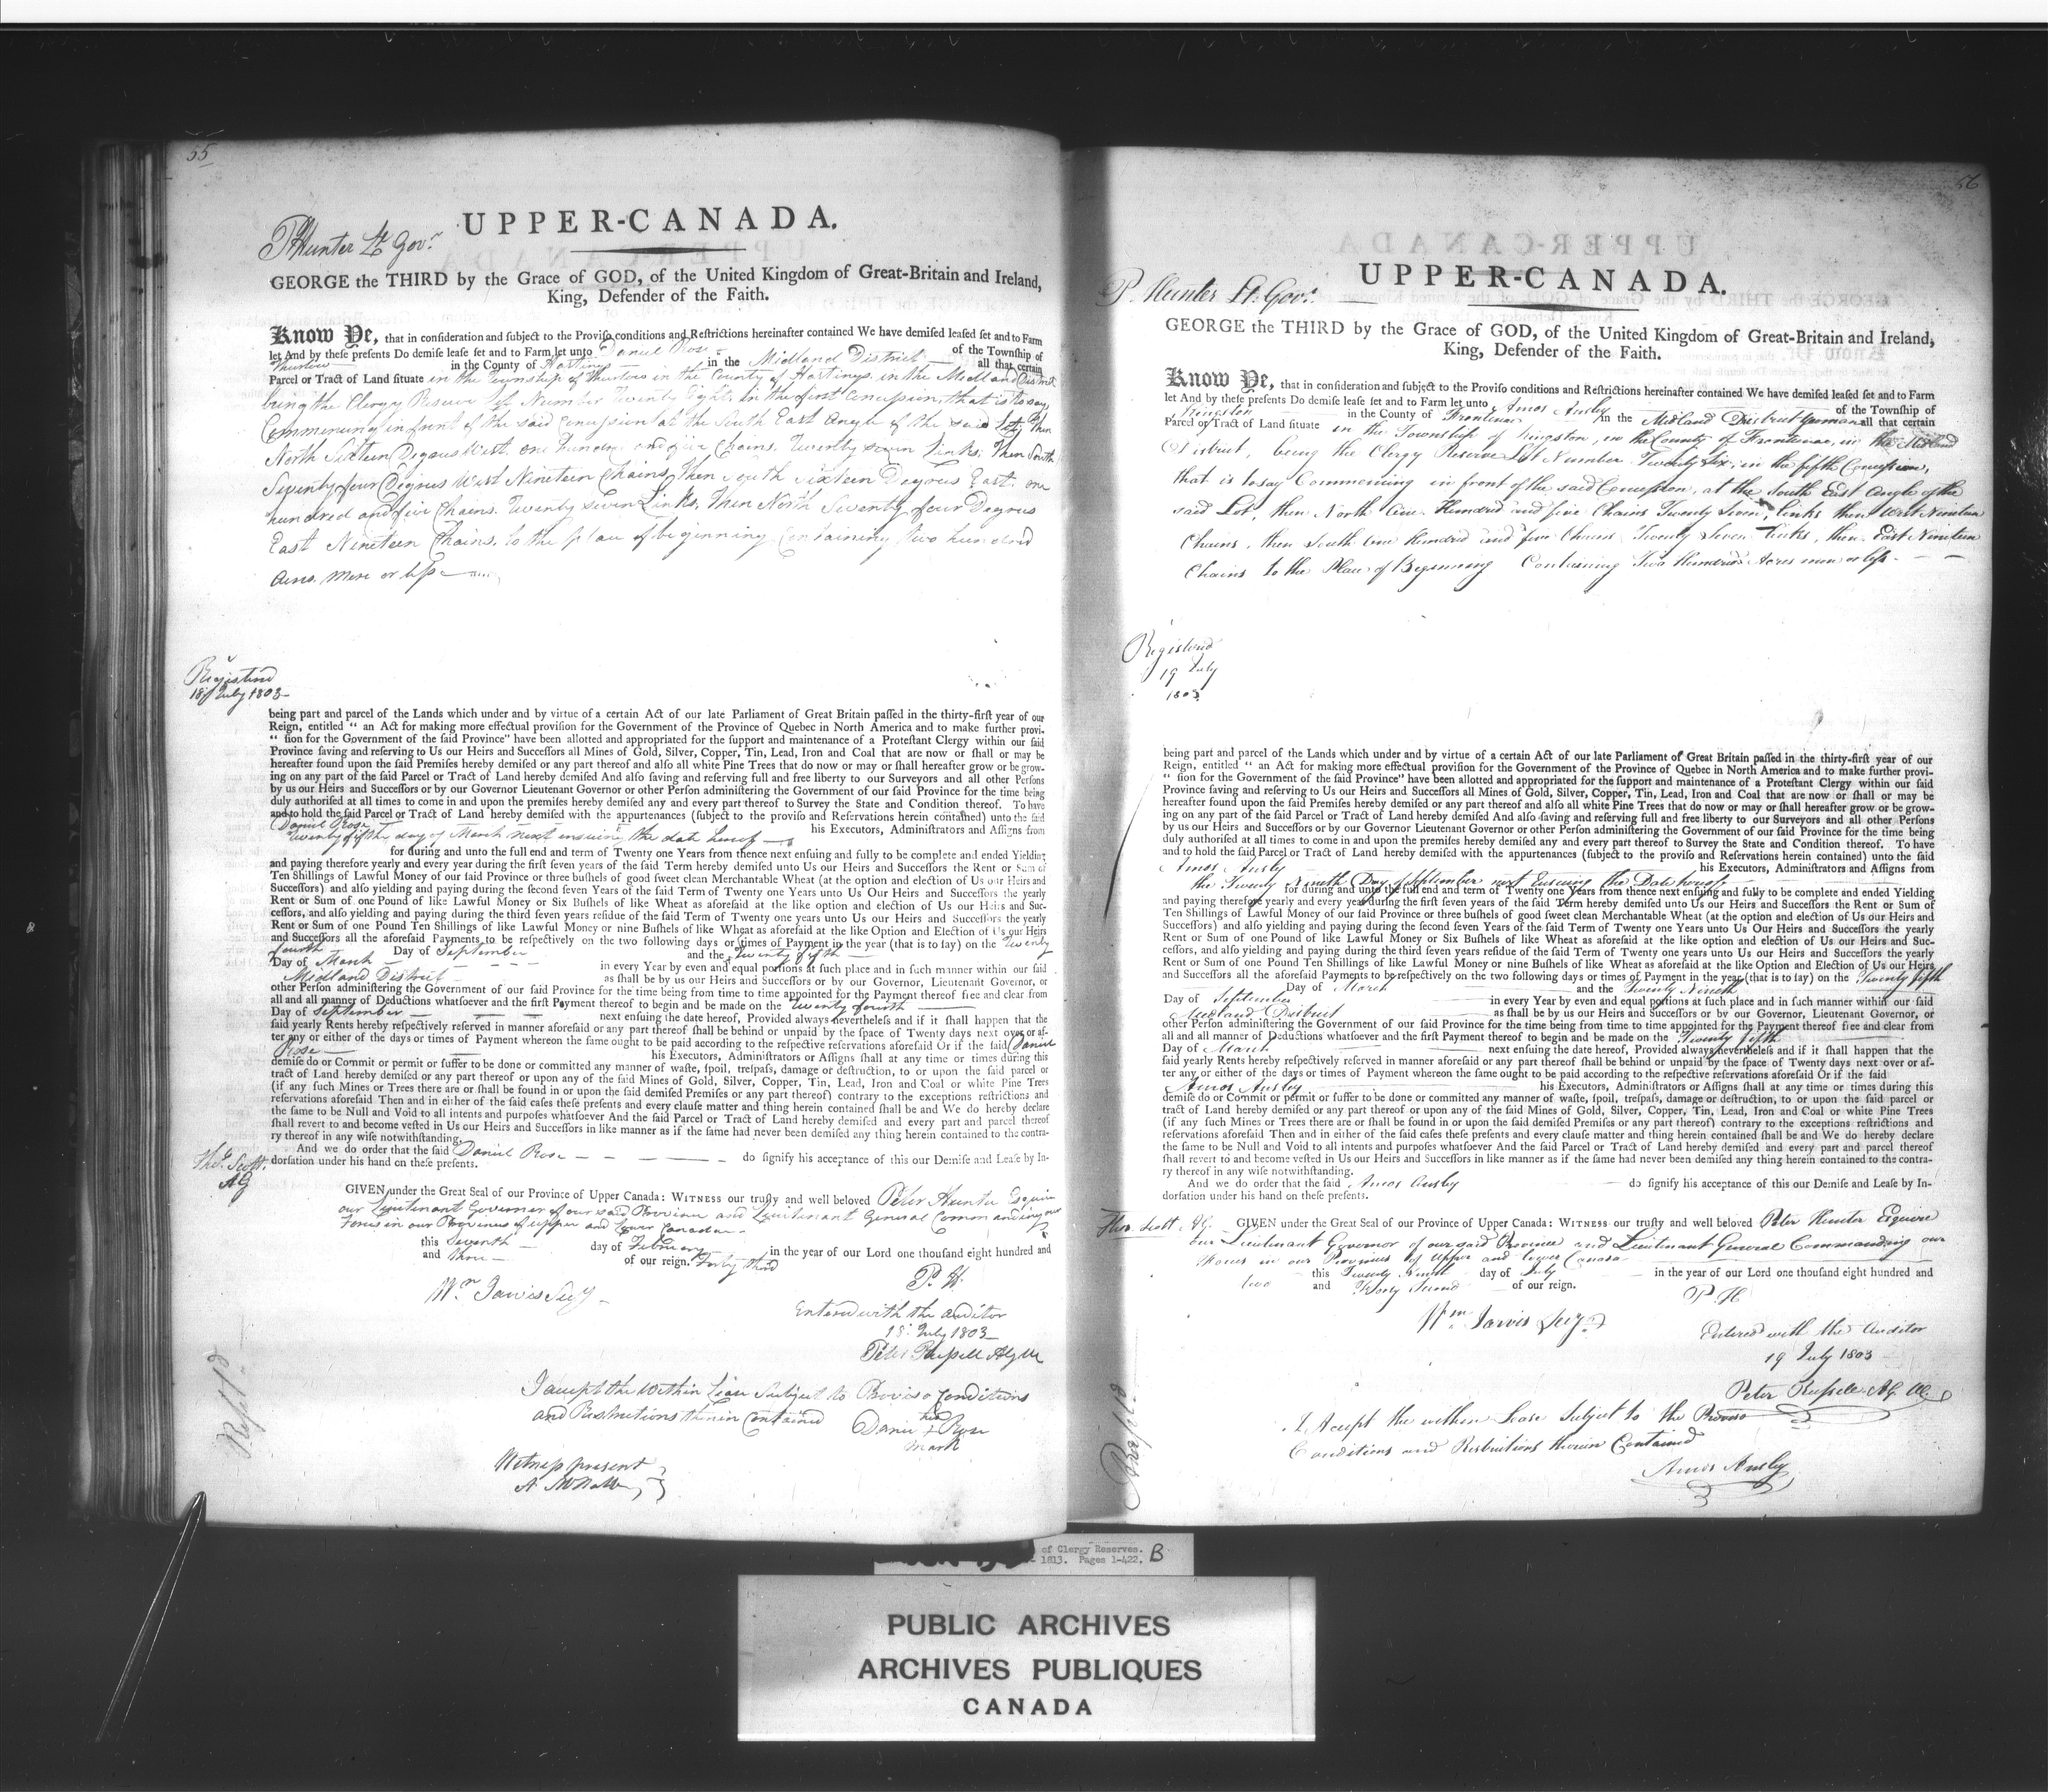 55
UPPER-CANADA.
P Hunter Lt Govr.
GEORGE the THIRD by the Grace of GOD, of the United Kingdom of Great-Britain and Ireland,
King, Defender of the Faith.
Know Ye, that in consideration and subject to the Proviso conditions and Restrictions hereinafter contained We have demised leased set and to Farm
let And by these presents Do demise lease set and to Farm let unto Daniel Rose of the Township of
Thurlow in the County of Hastings in the Midland District all that certain
Parcel or Tract of Land situate in the Township of Thurlow in the County of Hastings in the Midland District
being the Clergy Reserve Lot Number Twenty Eight, in the first Concession, that is to say,
Commencing in front of the said Concession at the South East Angle of the said lot, then
North Sixteen Degrees West one hundred and five Chains Twenty seven links, then South
Seventy four Degrees West Nineteen Chains, then South Sixteen Degrees East one
hundred and five Chains Twenty Seven Links, then North Seventy four Degrees
East Nineteen Chains, to the place of beginning, Containing Two hundred
Acres more or less
Registered
18 July 1803
being part and parcel of the Lands which under and by virtue of a certain Act of our late Parliament of Great Britain passed in the thirty-first year of our
Reign, entitled " an Act for making more effectual provision for the Government of the Province of Quebec in North America and to make further provi-
" sion for the Government of the said Province" have been allotted and appropriated for the support and maintenance of a Protestant Clergy within our said
Province saving and reserving to Us our Heirs and Successors all Mines of Gold, Silver, Copper, Tin, Lead, Iron and Coal that are now or shall or may be
hereafter found upon the said Premises hereby demised or any part thereof and also all white Pine Trees that do now or may or shall hereafter grow or be grow-
ing on any part of the said Parcel or Tract of Land hereby demised And also saving and reserving full and free liberty to our Surveyors and all other Persons
by us our Heirs and Successors or by our Governor Lieutenant Governor or other Person administering the Government of our said Province for the time being
duly authorised at all times to come in and upon the premises hereby demised any and every part thereof to Survey the State and Condition thereof. To have
and to hold the said Parcel or Tract of Land hereby demised with the appurtenances (subject to the proviso and Reservations herein contained) unto the said
Daniel Rose his Executors, Administrators and Assigns from
Twenty fifth day of March next ensuing the date hereof
for during and unto the full end and term of Twenty one Years from thence next ensuing and fully to be complete and ended Yielding
and paying therefore yearly and every year during the first seven years of the said Term hereby demised unto Us our Heirs and Successors the Rent or Sum of
Ten Shillings of Lawful Money of our said Province or three bushels of good sweet clean Merchantable Wheat (at the option and election of Us our Heirs and
Successors) and also yielding and paying during the second seven Years of the said Term of Twenty one Years unto Us Our Heirs and Successors the yearly
Rent or Sum of one Pound of like Lawful Money or Six Bushels of like Wheat as aforesaid at the like option and election of Us our Heirs and Suc-
cessors, and also yielding and paying during the third seven years residue of the said Term of Twenty one years unto Us our Heirs and Successors the yearly
Rent or Sum of one Pound Ten Shillings of like Lawful Money or nine Bushels of like Wheat as aforesaid at the like Option and Election of Us our Heirs
and Successors all the aforesaid Payments to be respectively on the two following days or times of Payment in the year (that is to say) on the Twenty
fourth Day of September and the Twenty fifth
Day of March in every Year by even and equal portions at such place and in such manner within our said
Midland District as shall be by us our Heirs and Successors or by our Governor, Lieutenant Governor, or
other Person administering the Government of our said Province for the time being from time to time appointed for the Payment thereof free and clear from
all and all manner of Deductions whatsoever and the first Payment thereof to begin and be made on the Twenty fourth
Day of September next ensuing the date hereof, Provided always nevertheless and if it shall happen that the
said yearly Rents hereby respectively reserved in manner aforesaid or any part thereof shall be behind or unpaid by the space of Twenty days next over or af-
ter any or either of the days or times of Payment whereon the same ought to be paid according to the respective reservations aforesaid Or if the said Daniel
Rose his Executors, Administrators or Assigns shall at any time or times during this
demise do or Commit or permit or suffer to be done or committed any manner of waste, spoil, trespass, damage or destruction, to or upon the said parcel or
tract of Land hereby demised or any part thereof or upon any of the said Mines of Gold, Silver, Copper, Tin, Lead, Iron and Coal or white Pine Trees
(if any such Mines or Trees there are or shall be found in or upon the said demised Premises or any part thereof) contrary to the exceptions restrictions and
reservations aforesaid Then and in either of the said cases these presents and every clause matter and thing herein contained shall be and We do hereby declare
the same to be Null and Void to all intents and purposes whatsoever And the said Parcel or Tract of Land hereby demised and every part and parcel thereof
shall revert to and become vested in Us our Heirs and Successors in like manner as if the same had never been demised any thing herein contained to the contra-
ry thereof in any wise notwithstanding.
And we do order that the said Daniel Rose do signify his acceptance of this our Demise and Lease by In-
dorsation under his hand on these presents.
Thos. Scott
AG
GIVEN under the Great Seal of our Province of Upper Canada: WITNESS our trusty and well beloved Peter Hunter Esquire
our Lieutenant Governor of our said Province and Lieutenant General Commanding our
Forces in our Provinces of Upper and Lower Canada
this Seventh day of February in the year of our Lord one thousand eight hundred and
and three of our reign. Forty third
P. H.
Wm Jarvis Secy
Entered with the auditor
18 July 1803
Peter Russell
I accept the within Lease Subject to Proviso Conditions
and Restrictions therein Contained
Daniel his X mark Rose
Witness present
56
UPPER-CANADA.
P. Hunter Lt. Govr.
GEORGE the THIRD by the Grace of GOD, of the United Kingdom of Great-Britain and Ireland,
King, Defender of the Faith.
Know Ye, that in consideration and subject to the Proviso conditions and Restrictions hereinafter contained We have demised leased set and to Farm
let And by these presents Do demise lease set and to Farm let unto Amos Ansley of the Township of
Kingston in the County of Frontenac in the Midland District yeoman all that certain
Parcel or Tract of Land situate in the Township of Kingston, in the County of Frontenac, in the Midland
District, being the Clergy Reserve Lot Number Twenty Six, in the fifth Concession,
that is to say Commencing in front of the said Concession, at the South East Angle of the
said Lot, then North One Hundred and five Chains Twenty Seven links then West Nineteen
Chains, then South One Hundred and five Chains Twenty Seven Links, then East Nineteen
Chains to the Place of Beginning Containing Two Hundred Acres more or less.
Registered
19 July
1803
being part and parcel of the Lands which under and by virtue of a certain Act of our late Parliament of Great Britain passed in the thirty-first year of our
Reign, entitled " an Act for making more effectual provision for the Government of the Province of Quebec in North America and to make further provi-
" sion for the Government of the said Province" have been allotted and appropriated for the support and maintenance of a Protestant Clergy within our said
Province saving and reserving to Us our Heirs and Successors all Mines of Gold, Silver, Copper, Tin, Lead, Iron and Coal that are now or shall or may be
hereafter found upon the said Premises hereby demised or any part thereof and also all white Pine Trees that do now or may or shall hereafter grow or be grow-
ing on any part of the said Parcel or Tract of Land hereby demised And also saving and reserving full and free liberty to our Surveyors and all other Persons
by us our Heirs and Successors or by our Governor Lieutenant Governor or other Person administering the Government of our said Province for the time being
duly authorised at all times to come in and upon the premises hereby demised any and every part thereof to Survey the State and Condition thereof. To have
and to hold the said Parcel or Tract of Land hereby demised with the appurtenances (subject to the proviso and Reservations herein contained) unto the said
Amos Ansley his Executors, Administrators and Assigns from
the Twenty Ninth Day of September next Ensuing the Date hereof
for during and unto the full end and term of Twenty one Years from thence next ensuing and fully to be complete and ended Yielding
and paying therefore yearly and every year during the first seven years of the said Term hereby demised unto Us our Heirs and Successors the Rent or Sum of
Ten Shillings of Lawful Money of our said Province or three bushels of good sweet clean Merchantable Wheat (at the option and election of Us our Heirs and
Successors) and also yielding and paying during the second seven Years of the said Term of Twenty one Years unto Us Our Heirs and Successors the yearly
Rent or Sum of one Pound of like Lawful Money or Six Bushels of like Wheat as aforesaid at the like option and election of Us our Heirs and Suc-
cessors, and also yielding and paying during the third seven years residue of the said Term of Twenty one years unto Us our Heirs and Successors the yearly
Rent or Sum of one Pound Ten Shillings of like Lawful Money or nine Bushels of like Wheat as aforesaid at the like Option and Election of Us our Heirs
and Successors all the aforesaid Payments to be respectively on the two following days or times of Payment in the year (that is to say) on the Twenty fifth
Day of March and the Twenty Ninth
Day of September in every Year by even and equal portions at such place and in such manner within our said
Midland District as shall be by us our Heirs and Successors or by our Governor, Lieutenant Governor, or
other Person administering the Government of our said Province for the time being from time to time appointed for the Payment thereof free and clear from
all and all manner of Deductions whatsoever and the first Payment thereof to begin and be made on the Twenty fifth
Day of March next ensuing the date hereof, Provided always nevertheless and if it shall happen that the
said yearly Rents hereby respectively reserved in manner aforesaid or any part thereof shall be behind or unpaid by the space of Twenty days next over or af-
ter any or either of the days or times of Payment whereon the same ought to be paid according to the respective reservations aforesaid Or if the said
Amos Ansley his Executors, Administrators or Assigns shall at any time or times during this
demise do or Commit or permit or suffer to be done or committed any manner of waste, spoil, trespass, damage or destruction, to or upon the said parcel or
tract of Land hereby demised or any part thereof or upon any of the said Mines of Gold, Silver, Copper, Tin, Lead, Iron and Coal or white Pine Trees
(if any such Mines or Trees there are or shall be found in or upon the said demised Premises or any part thereof) contrary to the exceptions restrictions and
reservations aforesaid Then and in either of the said cases these presents and every clause matter and thing herein contained shall be and We do hereby declare
the same to be Null and Void to all intents and purposes whatsoever And the said Parcel or Tract of Land hereby demised and every part and parcel thereof
shall revert to and become vested in Us our Heirs and Successors in like manner as if the same had never been demised any thing herein contained to the contra-
ry thereof in any wise notwithstanding.
And we do order that the said Amos Ansley do signify his acceptance of this our Demise and Lease by In-
dorsation under his hand on these presents.
Thos Scott AG.
GIVEN under the Great Seal of our Province of Upper Canada: WITNESS our trusty and well beloved Peter Hunter Esquire
our Lieutenant Governor of our said Province and Lieutenant General Commanding our
Forces in our Provinces of Upper and Lower Canada
this Twenty Ninth day of July in the year of our Lord one thousand eight hundred and
two and Forty Second of our reign.
P. H
Wm Jarvis Secy
Entered with the Auditor
19 July 1803
Peter Russell
I Accept the within Lease Subject to the Proviso
Conditions and Restrictions therein Contained
Amos Ansley
of Clergy Reserves.
1813. Pages 1-422. B
PUBLIC ARCHIVES
ARCHIVES PUBLIQUES
CANADA